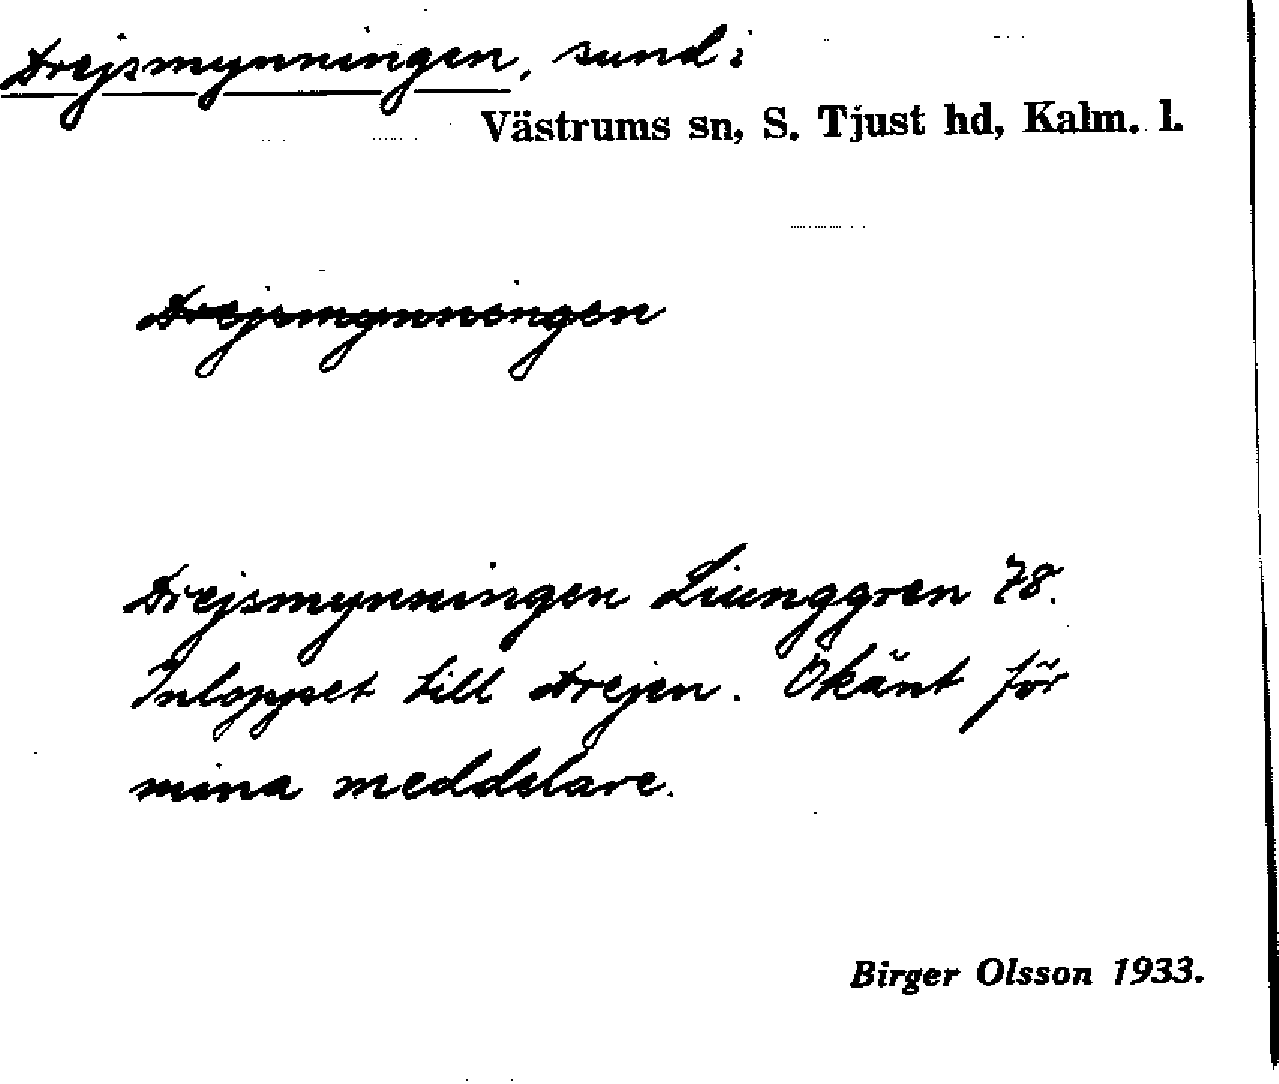 Drejsmynningen, sund i
Västrums sn, S. Tjust hd, Kalm. l.
Drejsmynningen
Drejsmynningen Liunggren 78.
Inloppet till Drejen. Okänt för
mina meddelare.
Birger Olsson 1933.